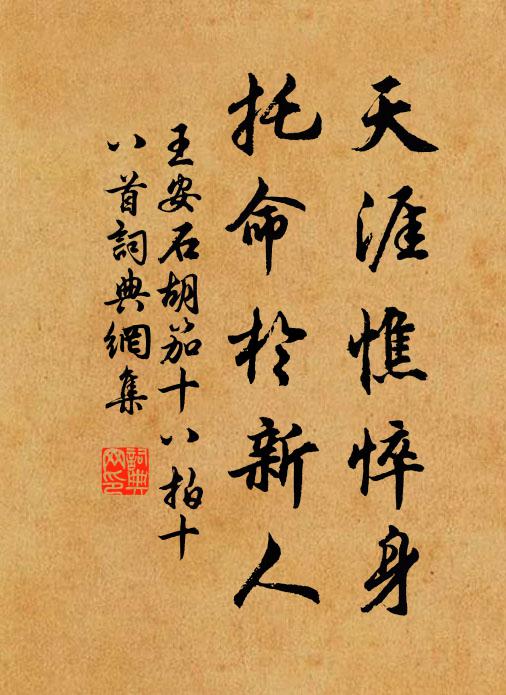 天涯憔悴身
托命於新人
王安石胡笳十八拍十
八首詞典網集
詞典網印